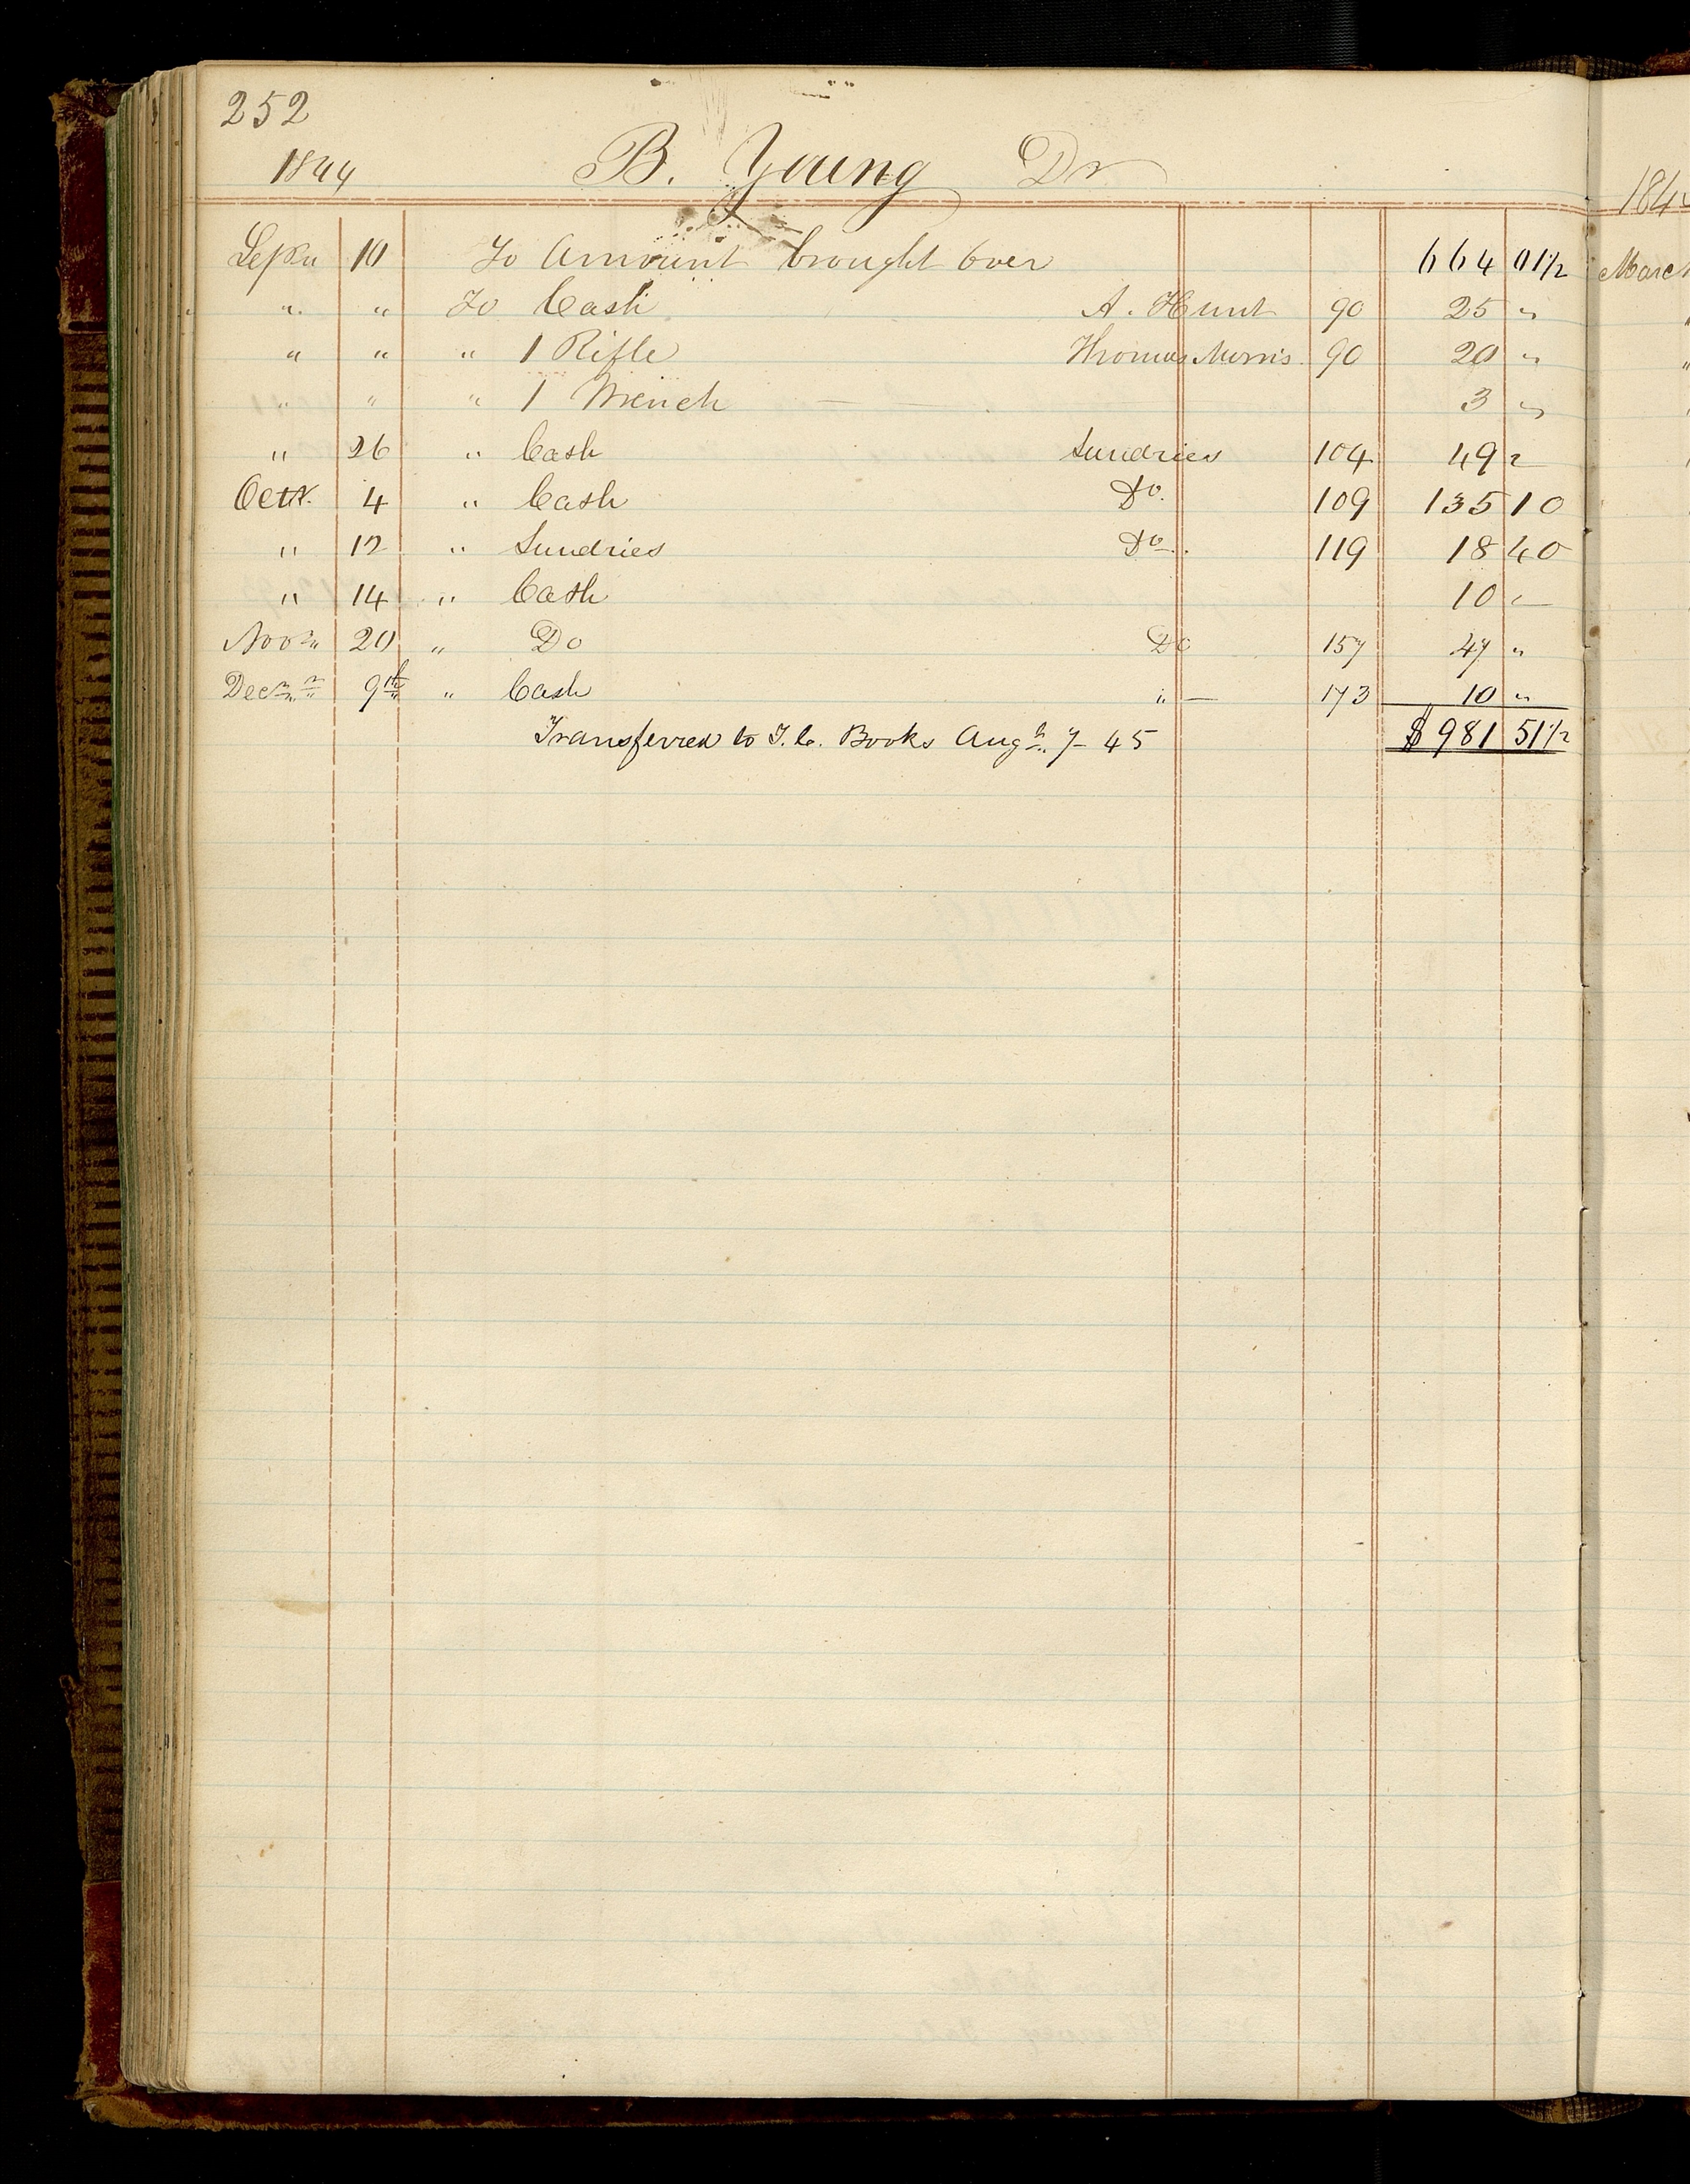 252
1844 B. Young Dr
Sepr 10 To Amount brought over 664 01 1/2
" " To Cash A. Hunt 90 25 "
" " " 1 Rifle Thomas Morris 90 20 "
" " " 1 Wrench — 3 "
" 26 " Cash Sundries 104 49 "
Octr. 4 " Cash Do. 109 135 10
" 12 " Sundries Do. 119 18 40
" 14 " Cash 10 "
Novr 20 " Do Do 157 47 "
Decr 9th " Cash " — 173 10 "
Transferred to T. C. Books Augt. 7 - 45 $ 981 51 1/2
184
March